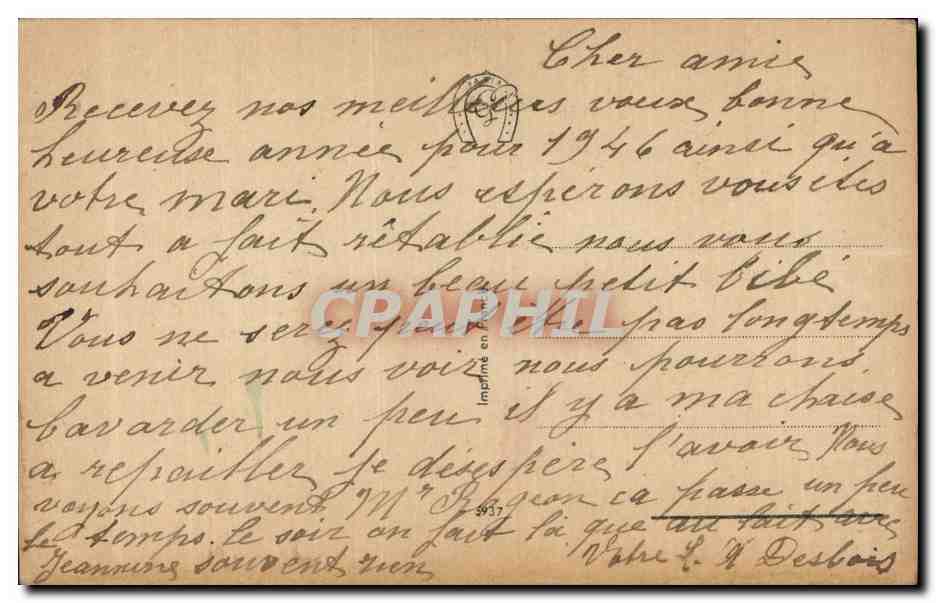 Cher amie
Recevez nos meilleurs voux bonne
heureuse année pour 1946 ainsi qu'a
votre mari. Nous espérons vous etes
tout a fait rétablie nous vous
souhaitons un beau petit bibé
CPARPHIL
Vous ne serez peut etre pas longtemps
a venir nous voir nous pourrons
bavarder un peu il y a ma chaise
a repailler je désespère l'avoir Nous
voyons souvent Mr ca passe un peu
le temps. le soir on fait la que
Jeannine souvent rien Votre Desbois
Imprimé en France
5937